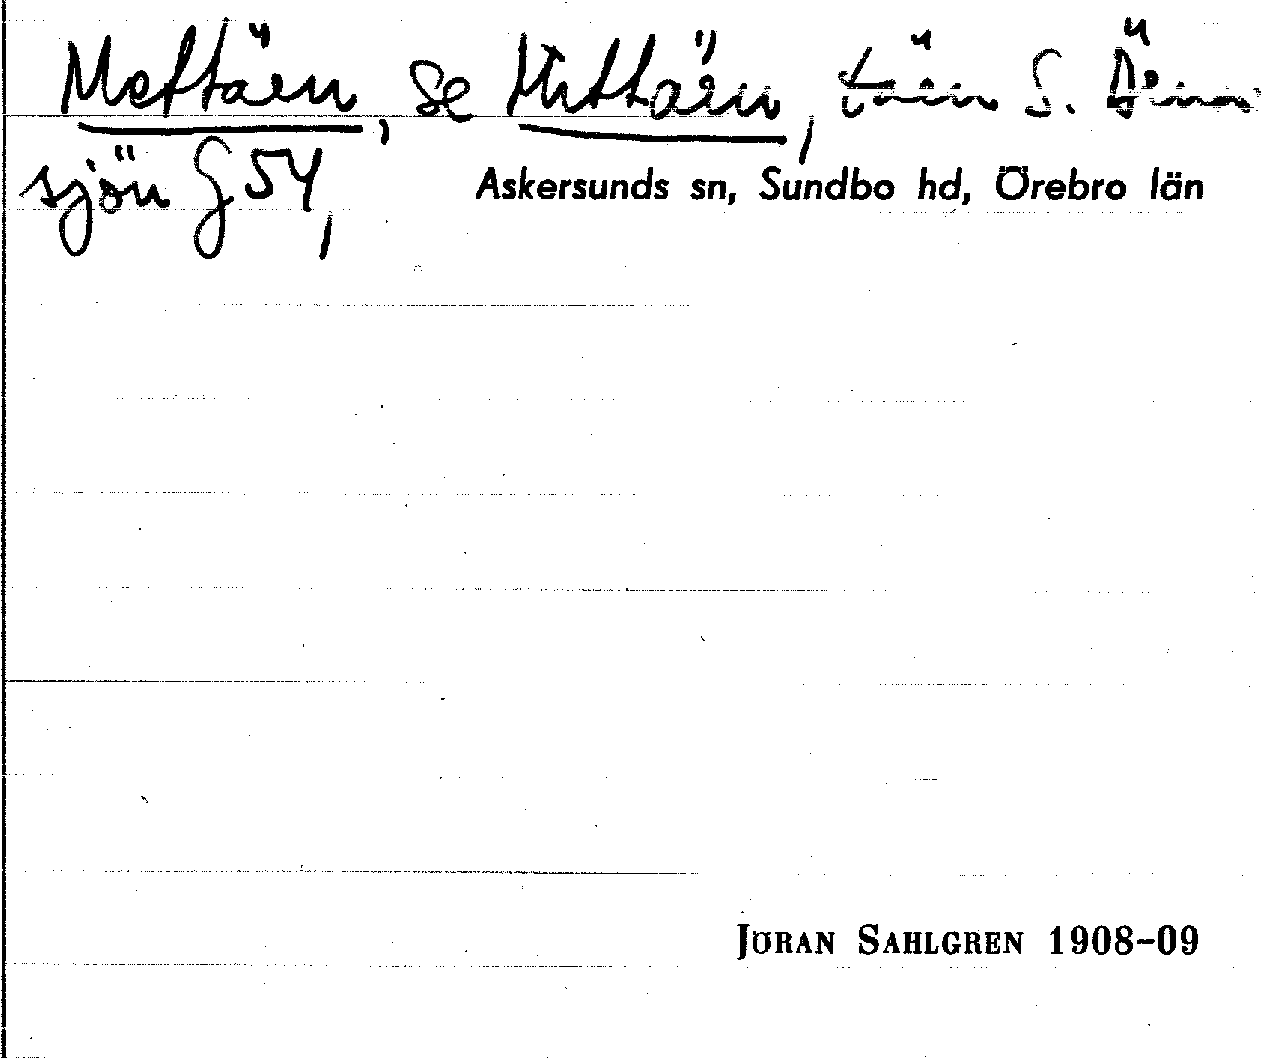 Meftäen, se Mittäen, täen S.
sjön G 54,
Askersunds sn, Sundbo hd, Örebro län
JÖRAN SAHLGREN 1908–09